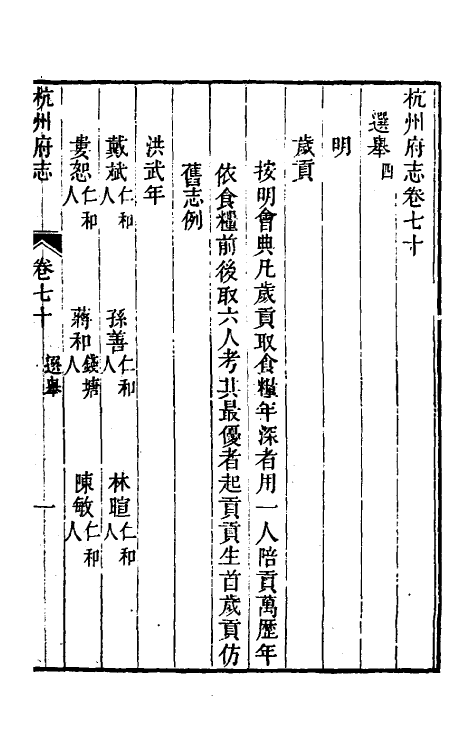 杭州府志卷七十
選舉四
明
歲貢
按明會典凡歲貢取食糧年深者用一人陪貢萬歷年
依食糧前後取六人考其最優者起貢貢生首歲貢仿
舊志例
洪武年
戴斌仁和人 孫善仁和人 林暄仁和人
婁恕仁和人 蔣和錢塘人 陳敏仁和人
杭州府志 卷七十 選舉 一